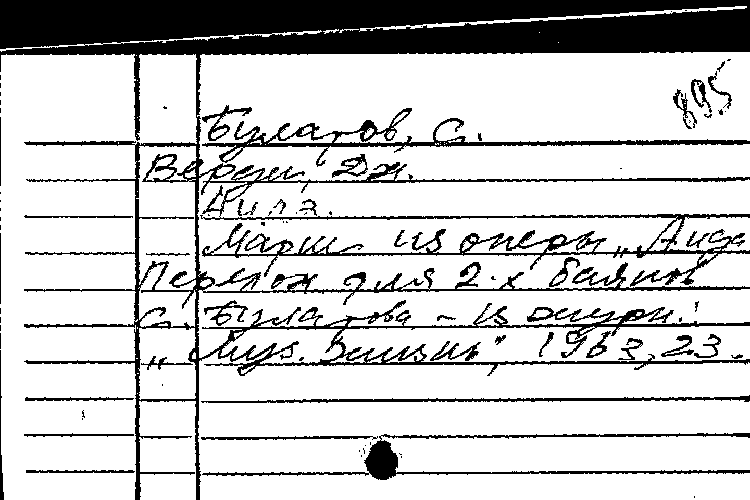 895
Булатов, С.
Верди, Дж.
Аида.
Марш из оперы „Аида
Перелож для 2-х баянов
С. Булатова – из журн.:
„Муз. жизнь", 1963, 23.